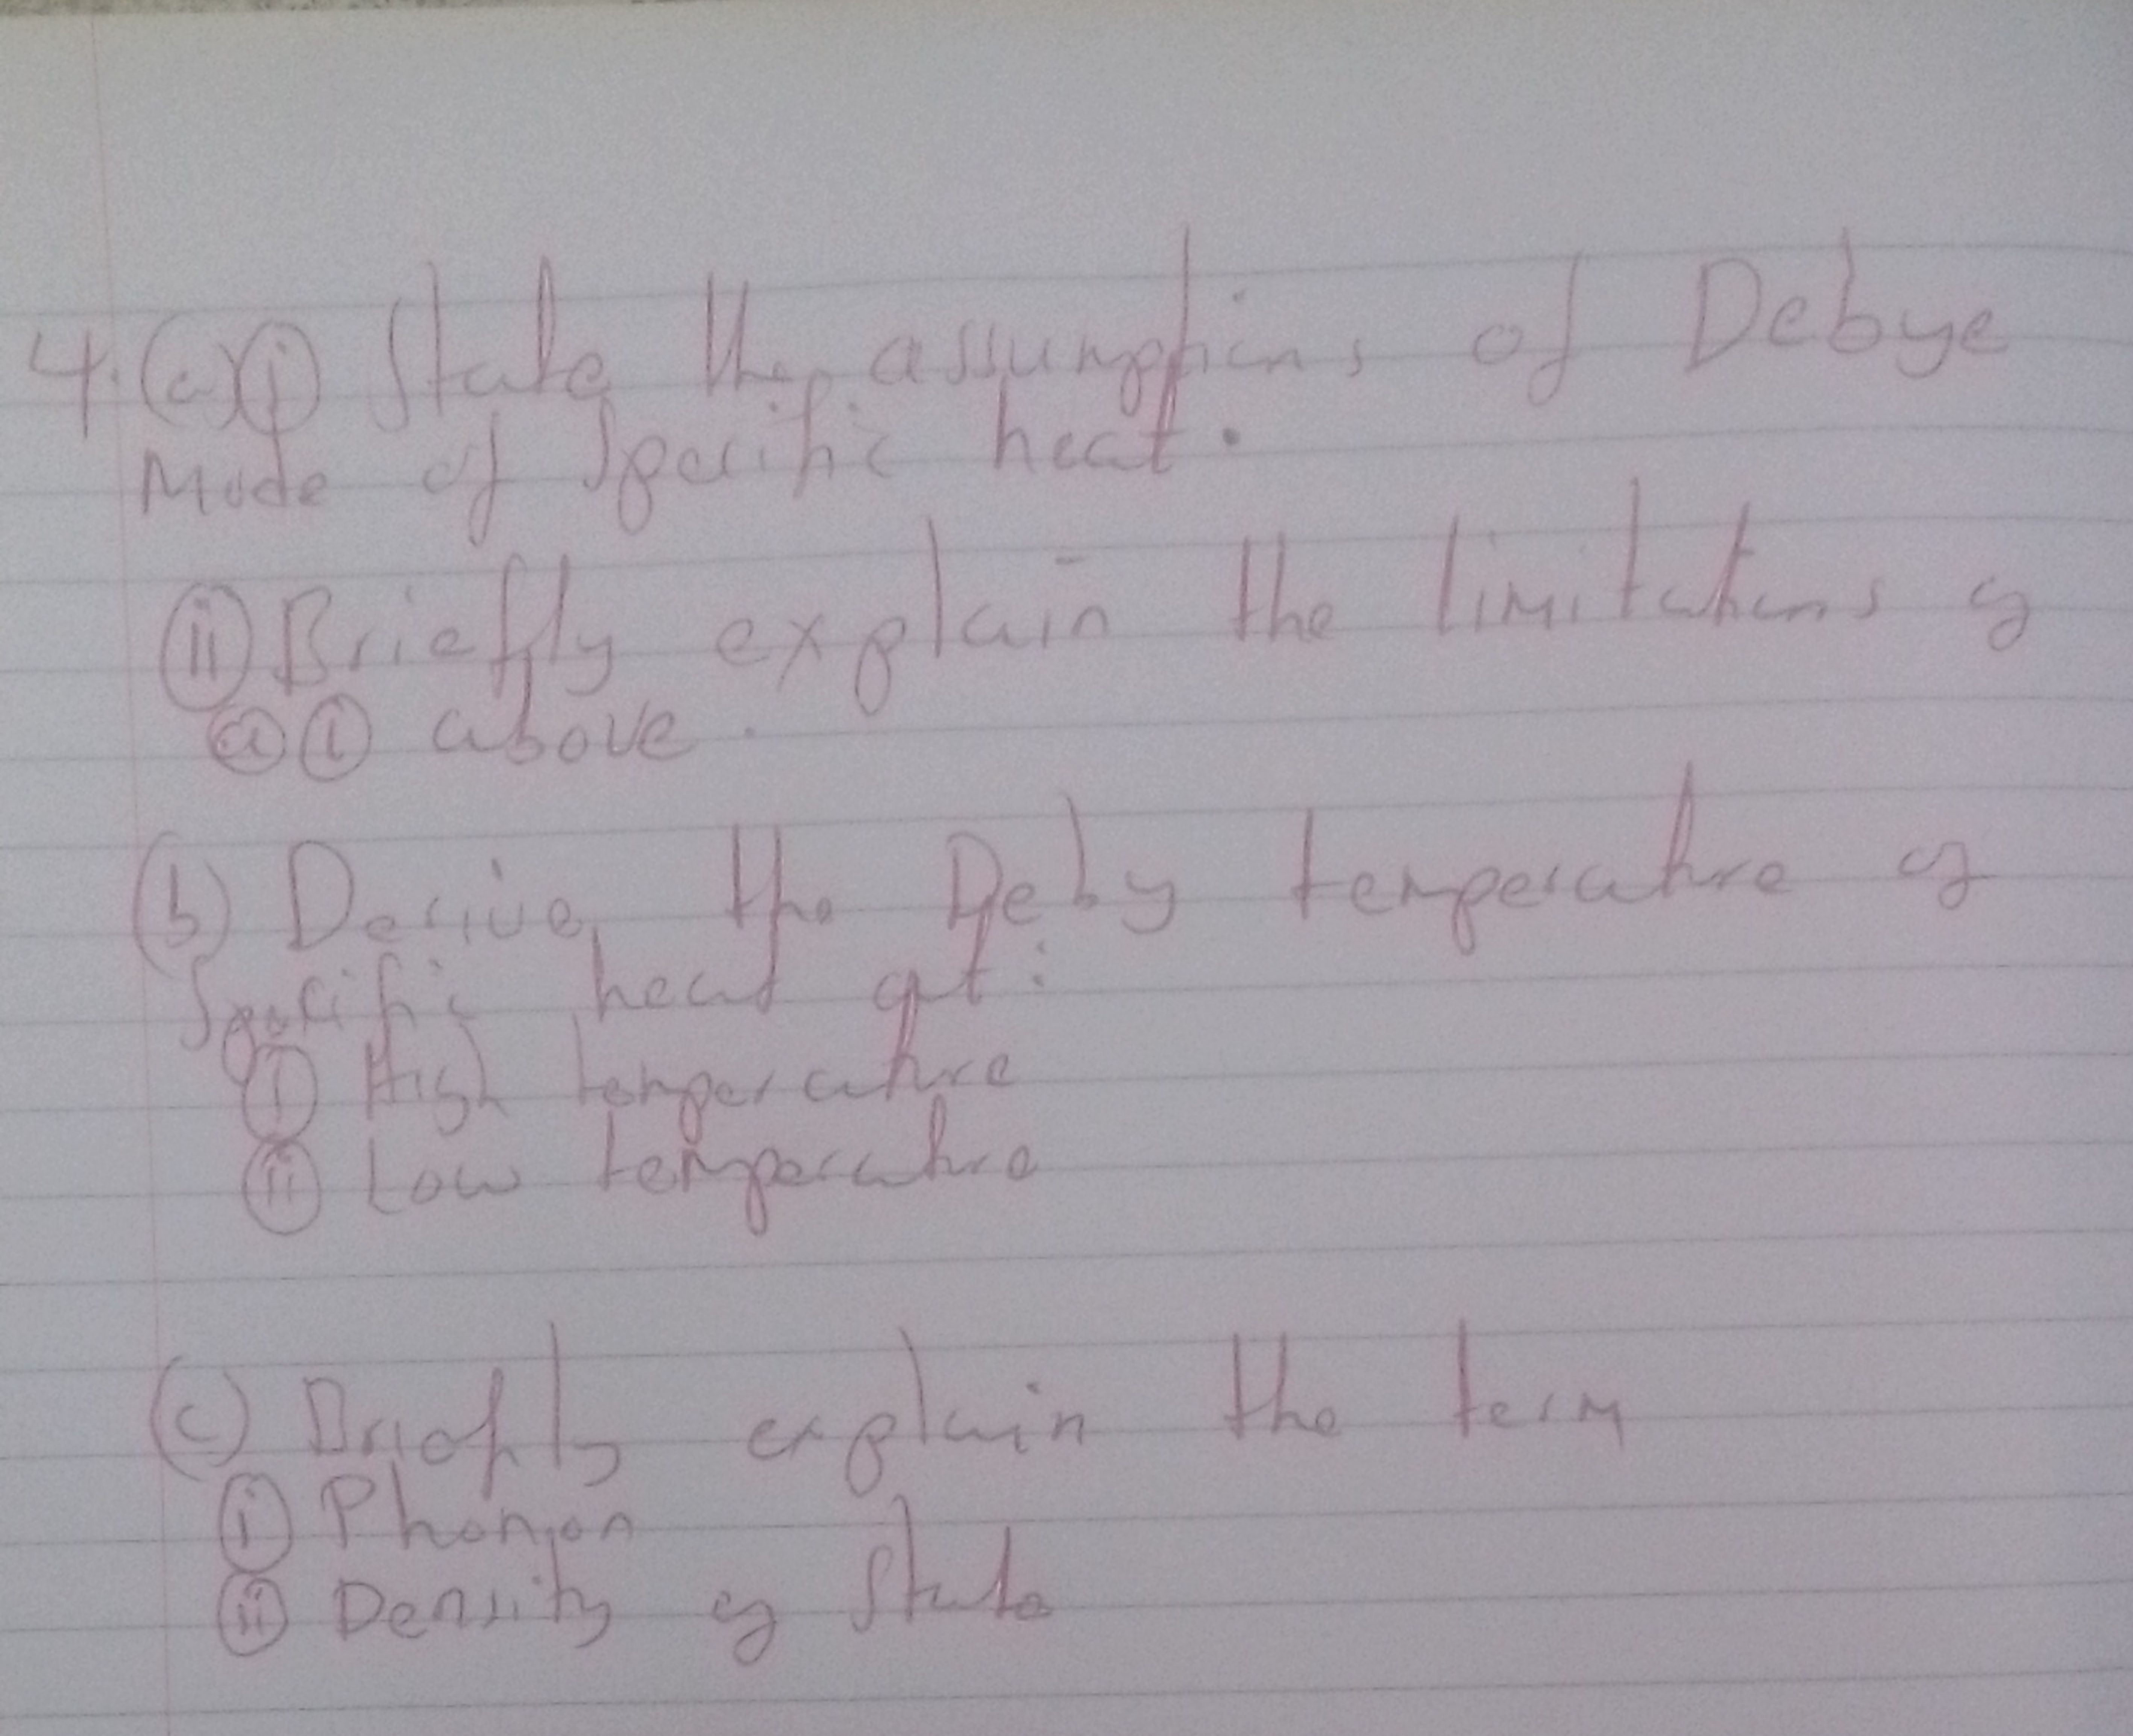 4.(a)(i) State the assumptions of Debye
Mode of Specific heat.
(ii) Briefly explain the limitations of
(a)(i) above.
(b) Derive the Deby temperature of
Specific heat at:
(i) High temperature
(ii) Low temperature
(c) Briefly explain the term
(i) Phonon
(ii) Density of State